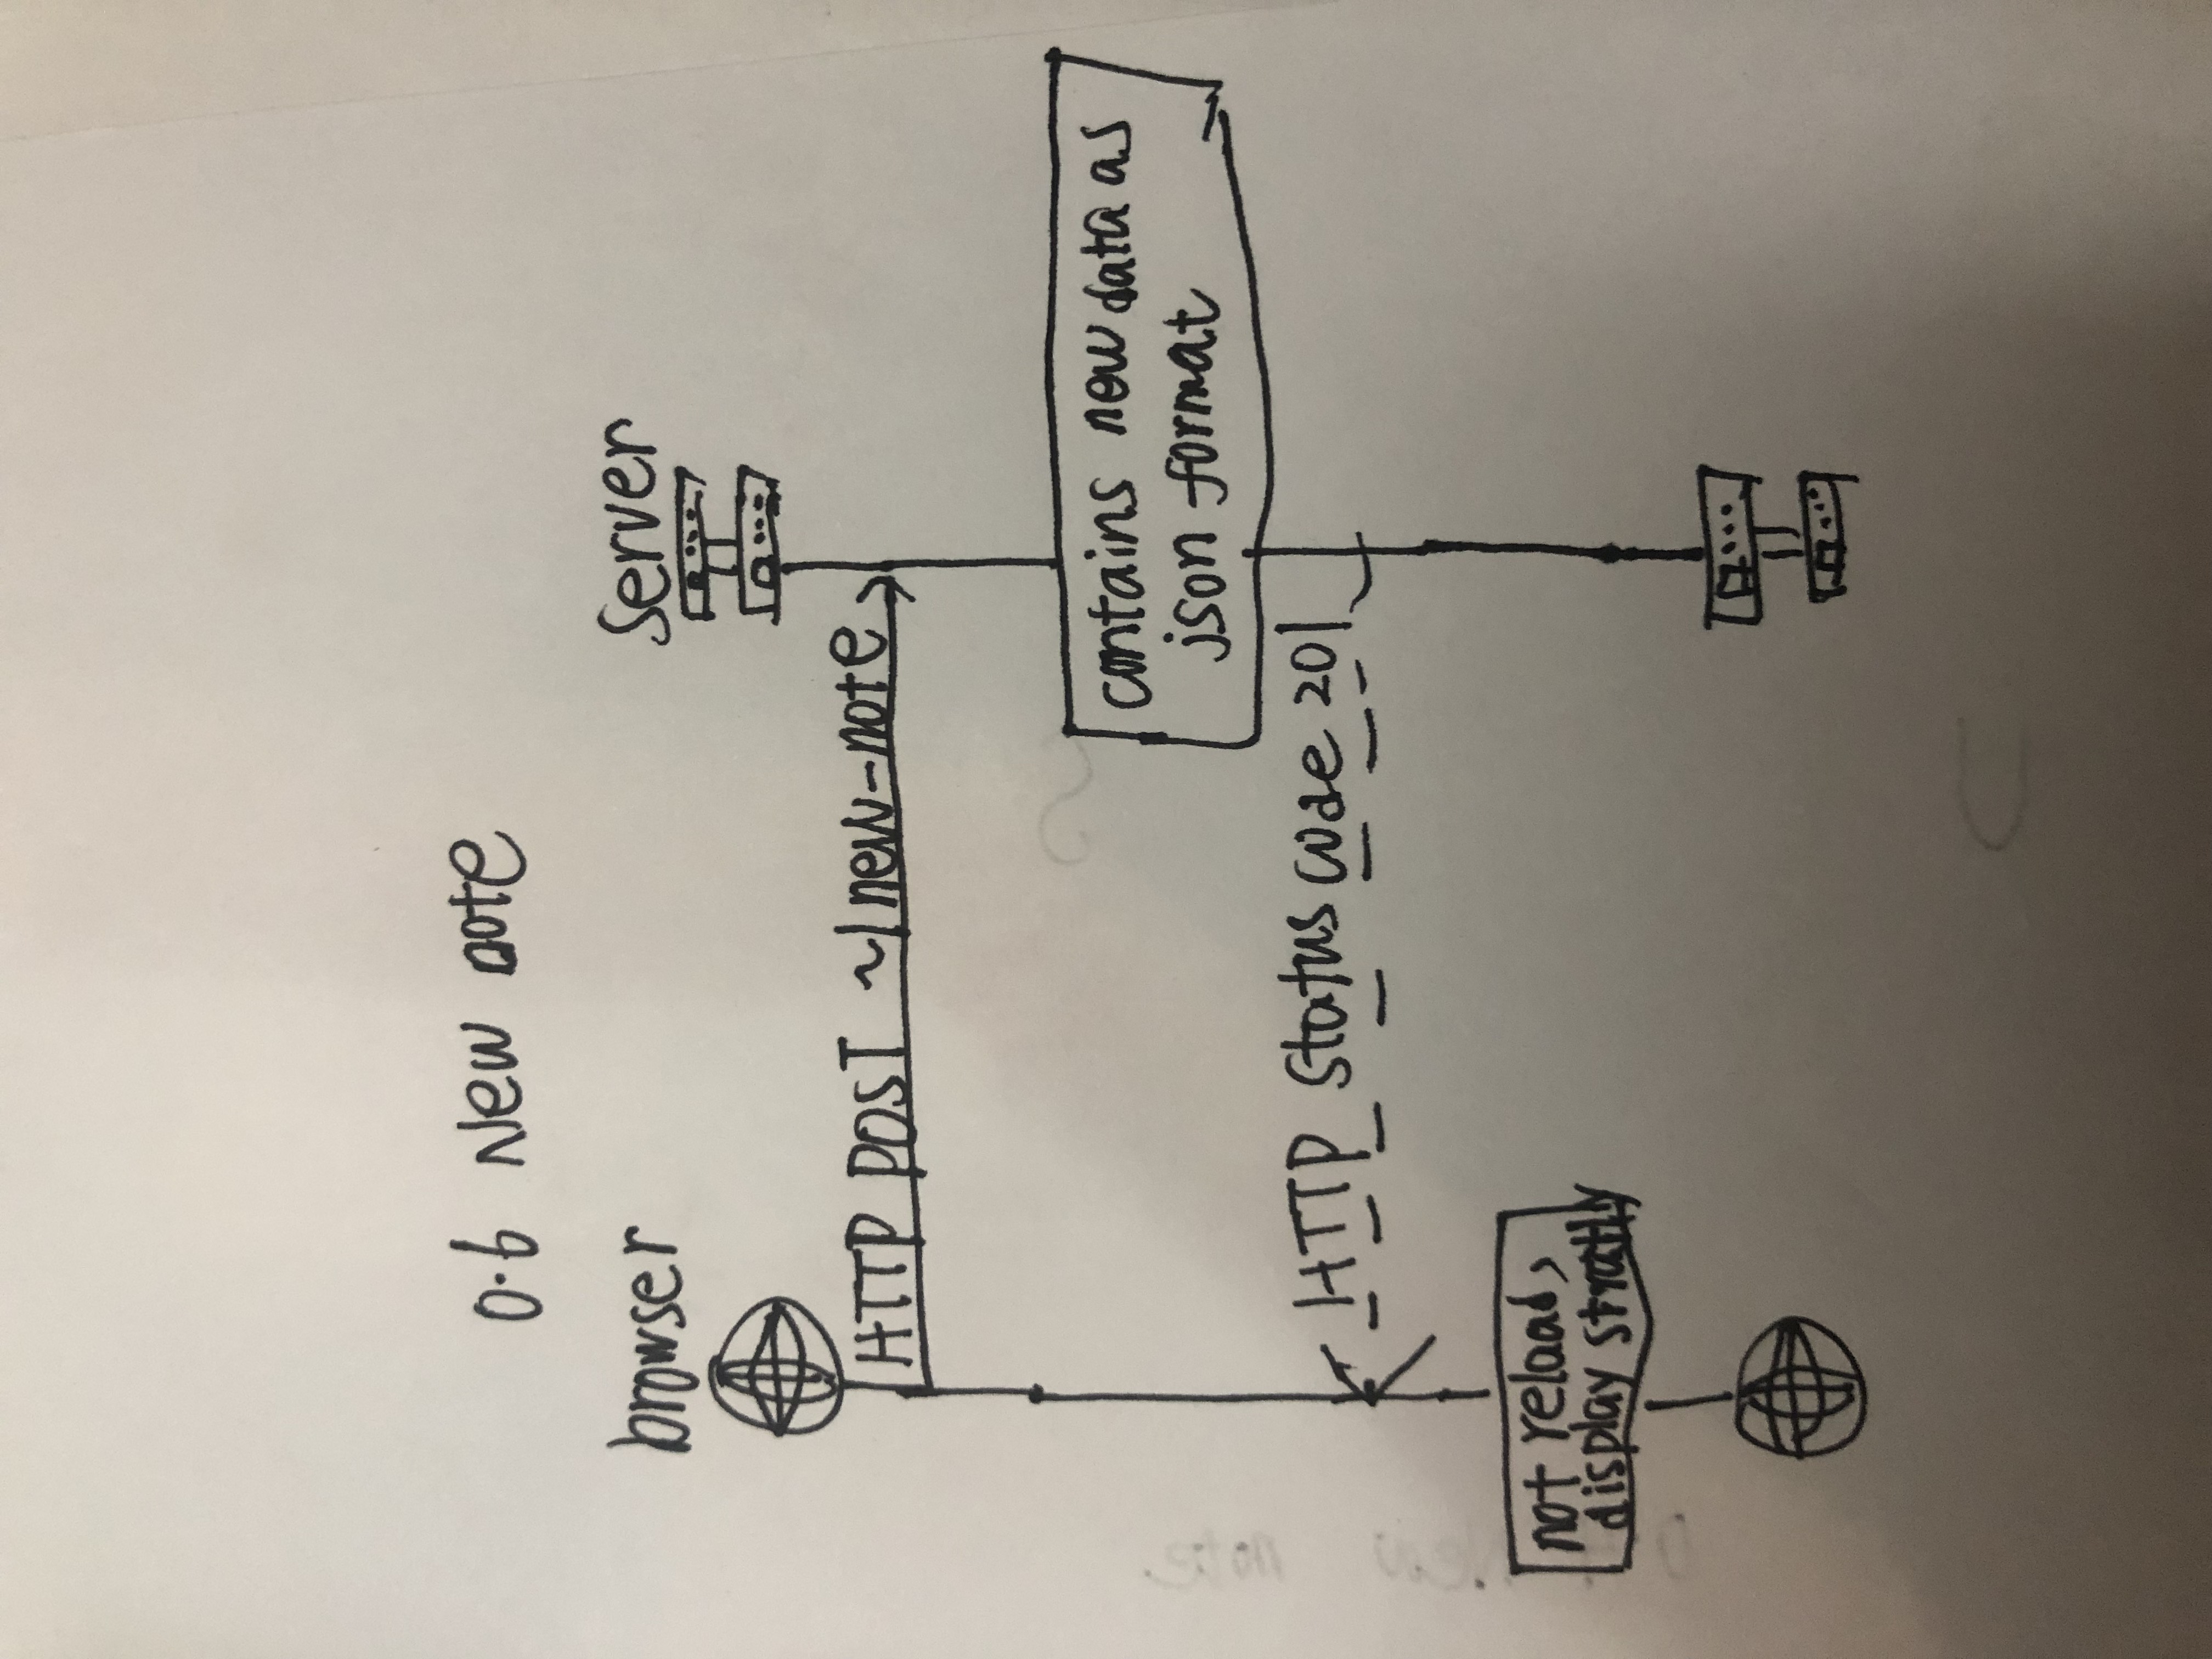 0.6 New note
browser
Server
HTTP POST ~/new-note
contains new data as
json format
HTTP Status code 201
not reload,
display